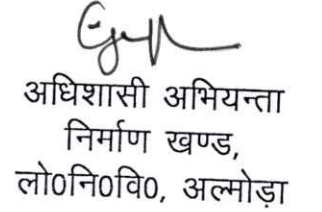 अधिशासी अभियन्ता
निर्माण खण्ड,
लो0नि0वि0, अल्मोड़ा